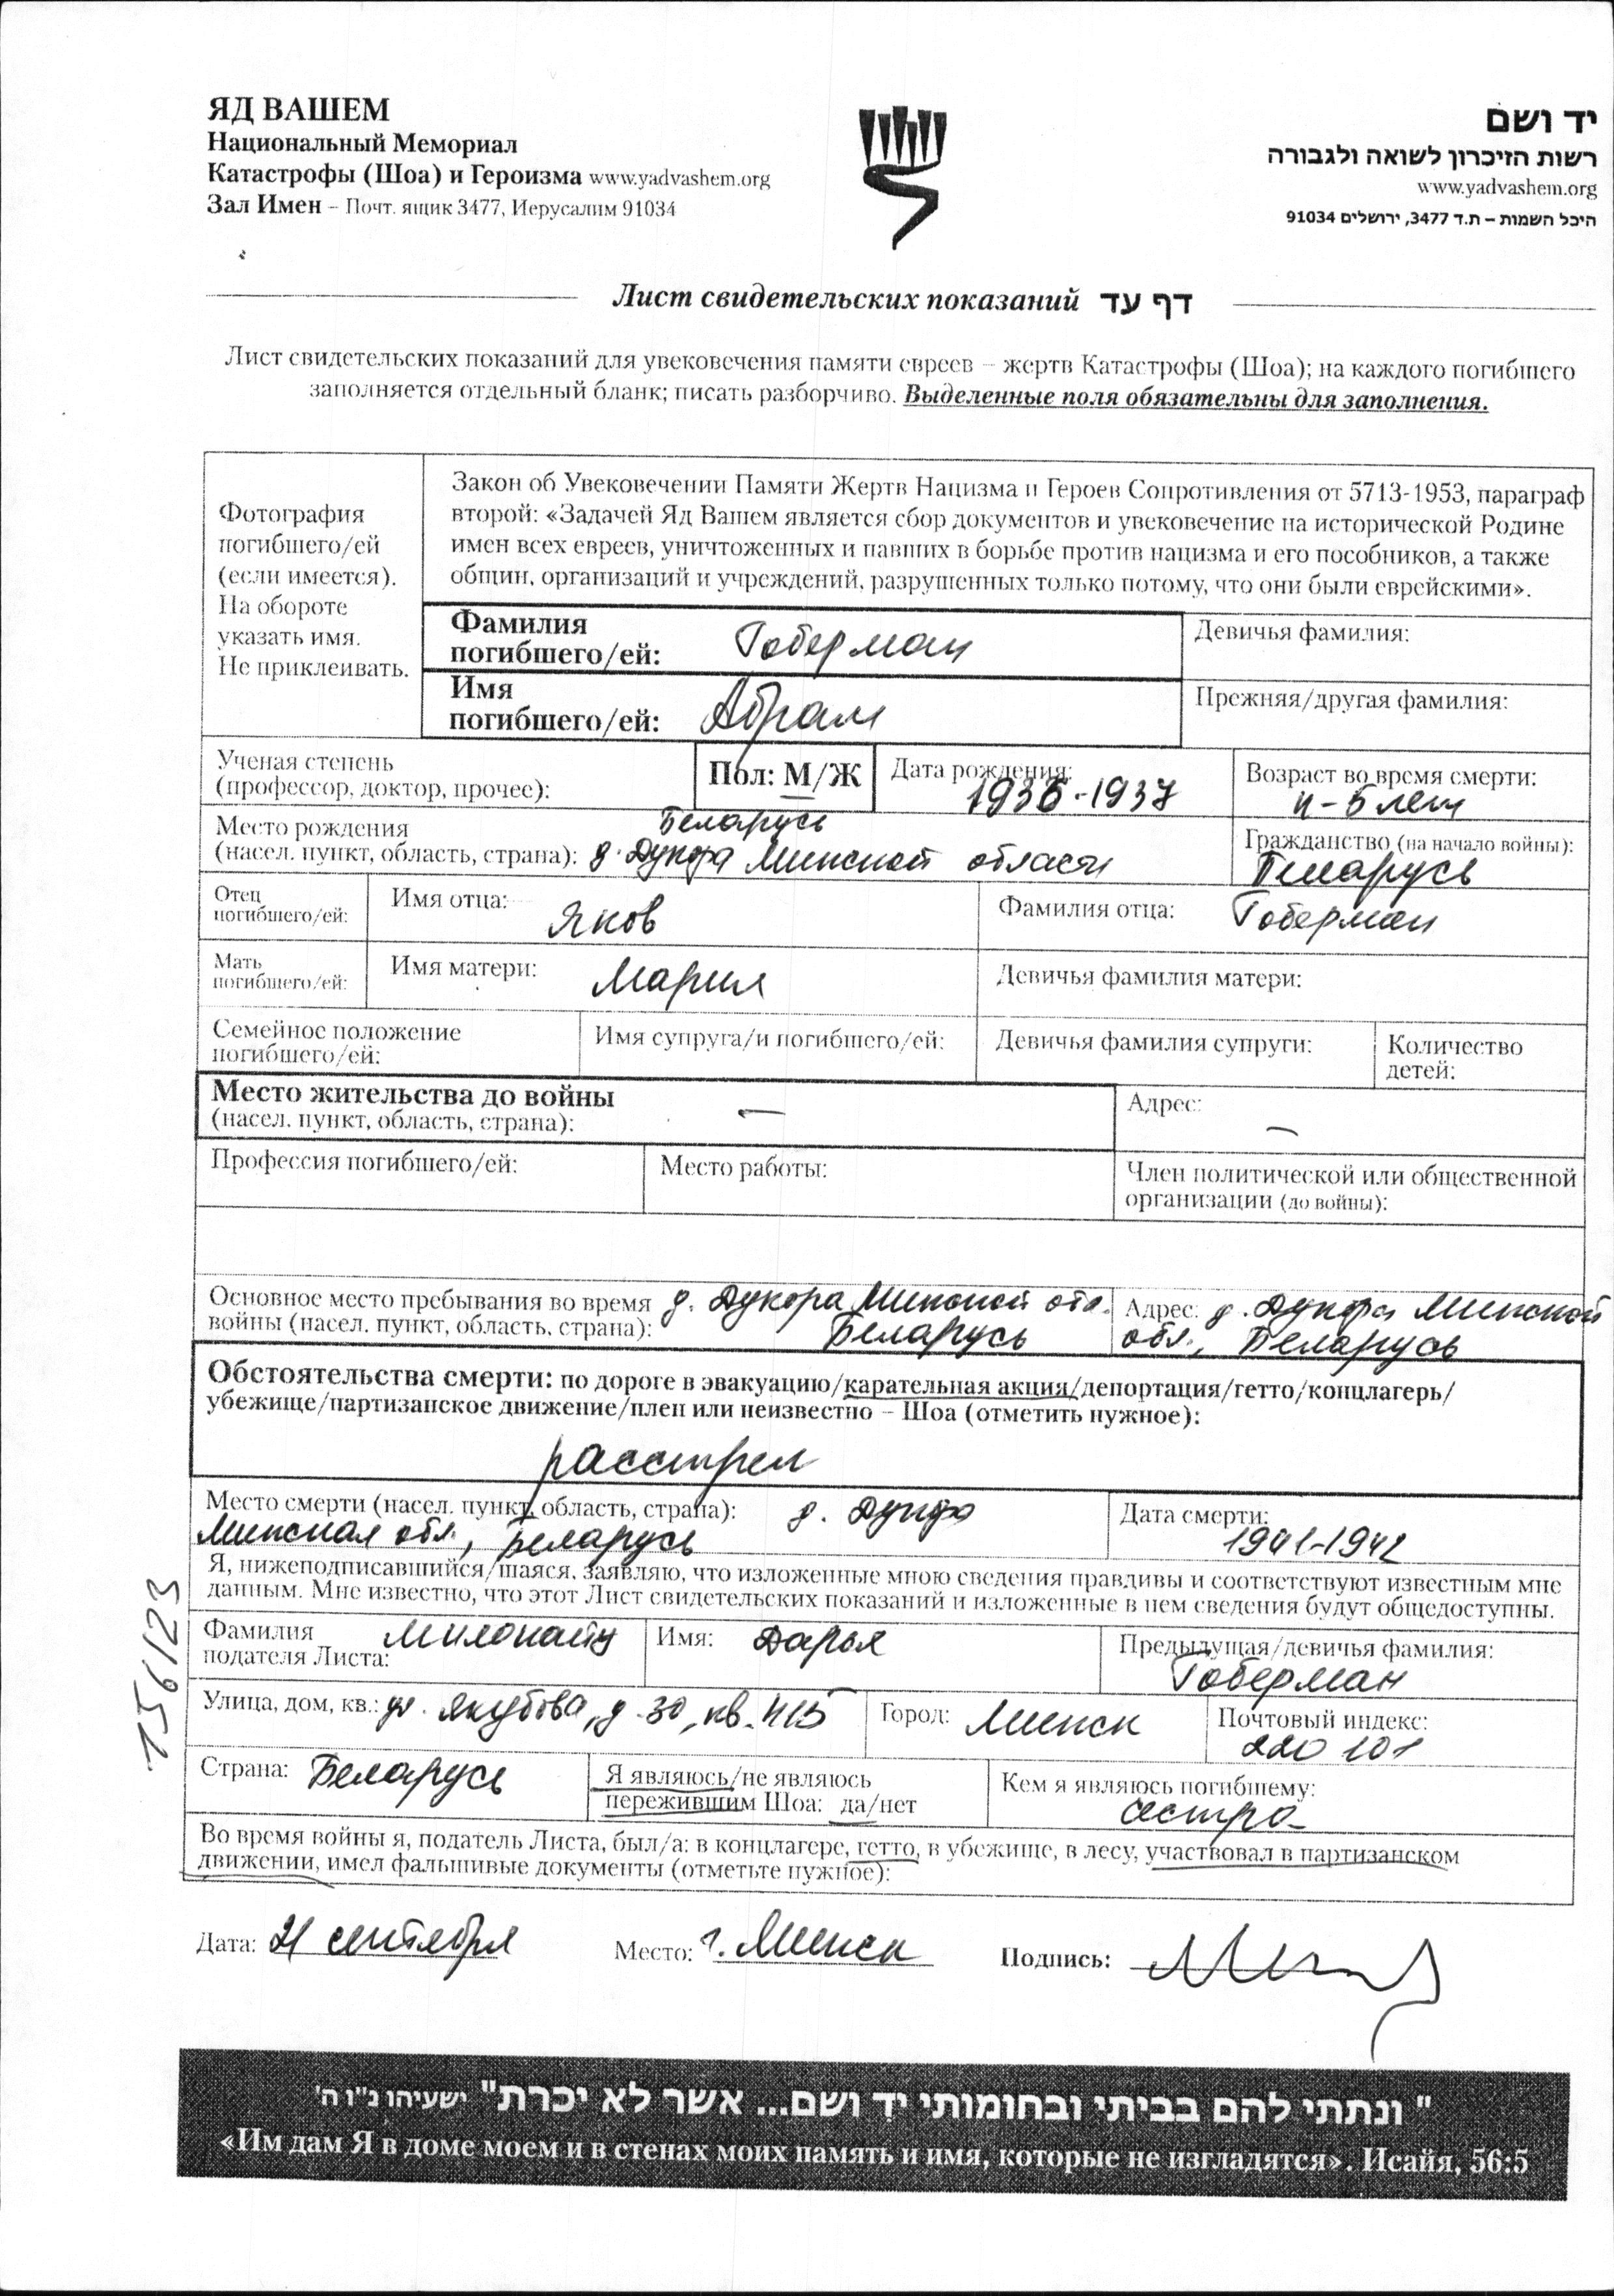 ЯД ВАШЕМ
Национальный Мемориал
Катастрофы (Шоа) и Героизма www.yadvashem.org
Зал Имен – Почт. ящик 3477, Иерусалим 91034
יד ושם
רשות הזיכרון לשואה ולגבורה
www.yadvashem.org
היכל השמות – ת.ד 3477, ירושלים 91034
Лист свидетельских показаний דף עד
Лист свидетельских показаний для увековечения памяти евреев – жертв Катастрофы (Шоа); на каждого погибшего
заполняется отдельный бланк; писать разборчиво. Выделенные поля обязательны для заполнения.
Фотография
погибшего/ей
(если имеется).
На обороте
указать имя.
Не приклеивать.
Закон об Увековечении Памяти Жертв Нацизма и Героев Сопротивления от 5713-1953, параграф
второй: «Задачей Яд Вашем является сбор документов и увековечение на исторической Родине
имен всех евреев, уничтоженных и павших в борьбе против нацизма и его пособников, а также
общин, организаций и учреждений, разрушенных только потому, что они были еврейскими».
Фамилия
погибшего/ей: Гоберман
Девичья фамилия:
Имя
погибшего/ей: Абрам
Прежняя/другая фамилия:
Ученая степень
(профессор, доктор, прочее):
Пол: М/Ж
Дата рождения:
1936-1937
Возраст во время смерти:
4-5 лет
Место рождения Беларусь
(насел. пункт, область, страна): д. Дукора Минской области
Гражданство (на начало войны):
Беларусь
Отец
погибшего/ей:
Имя отца: Яков
Фамилия отца: Гоберман
Мать
погибшего/ей:
Имя матери: Мария
Девичья фамилия матери:
Семейное положение
погибшего/ей:
Имя супруга/и погибшего/ей:
Девичья фамилия супруги:
Количество
детей:
Место жительства до войны
(насел. пункт, область, страна): —
Адрес:
—
Профессия погибшего/ей:
Место работы:
Член политической или общественной
организации (до войны):
Основное место пребывания во время д. Дукора Минской обл.
войны (насел. пункт, область, страна): Беларусь
Адрес: д. Дукора Минской
обл., Беларусь
Обстоятельства смерти: по дороге в эвакуацию/карательная акция/депортация/гетто/концлагерь/
убежище/партизанское движение/плен или неизвестно – Шоа (отметить нужное):
расстрел
Место смерти (насел. пункт, область, страна): д.
Минская обл., Беларусь
Дата смерти:
1941-1942
Я, нижеподписавшийся/шаяся, заявляю, что изложенные мною сведения правдивы и соответствуют известным мне
данным. Мне известно, что этот Лист свидетельских показаний и изложенные в нем сведения будут общедоступны.
Фамилия
подателя Листа:
Имя: Дарья
Предыдущая/девичья фамилия:
Гоберман
Улица, дом, кв.: ул. Якубова, д. 30, кв. 415
Город: Минск
Почтовый индекс:
220 101
Страна: Беларусь
Я являюсь/не являюсь
пережившим Шоа: да/нет
Кем я являюсь погибшему:
сестра
Во время войны я, податель Листа, был/а: в концлагере, гетто, в убежище, в лесу, участвовал в партизанском
движении, имел фальшивые документы (отметьте нужное):
Дата: 21 сентября
Место: г. Минск
Подпись:
156123
" ונתתי להם בביתי ובחומותי יד ושם... אשר לא יכרת" ישעיהו נ"ו ה'
«Им дам Я в доме моем и в стенах моих память и имя, которые не изгладятся». Исайя, 56:5